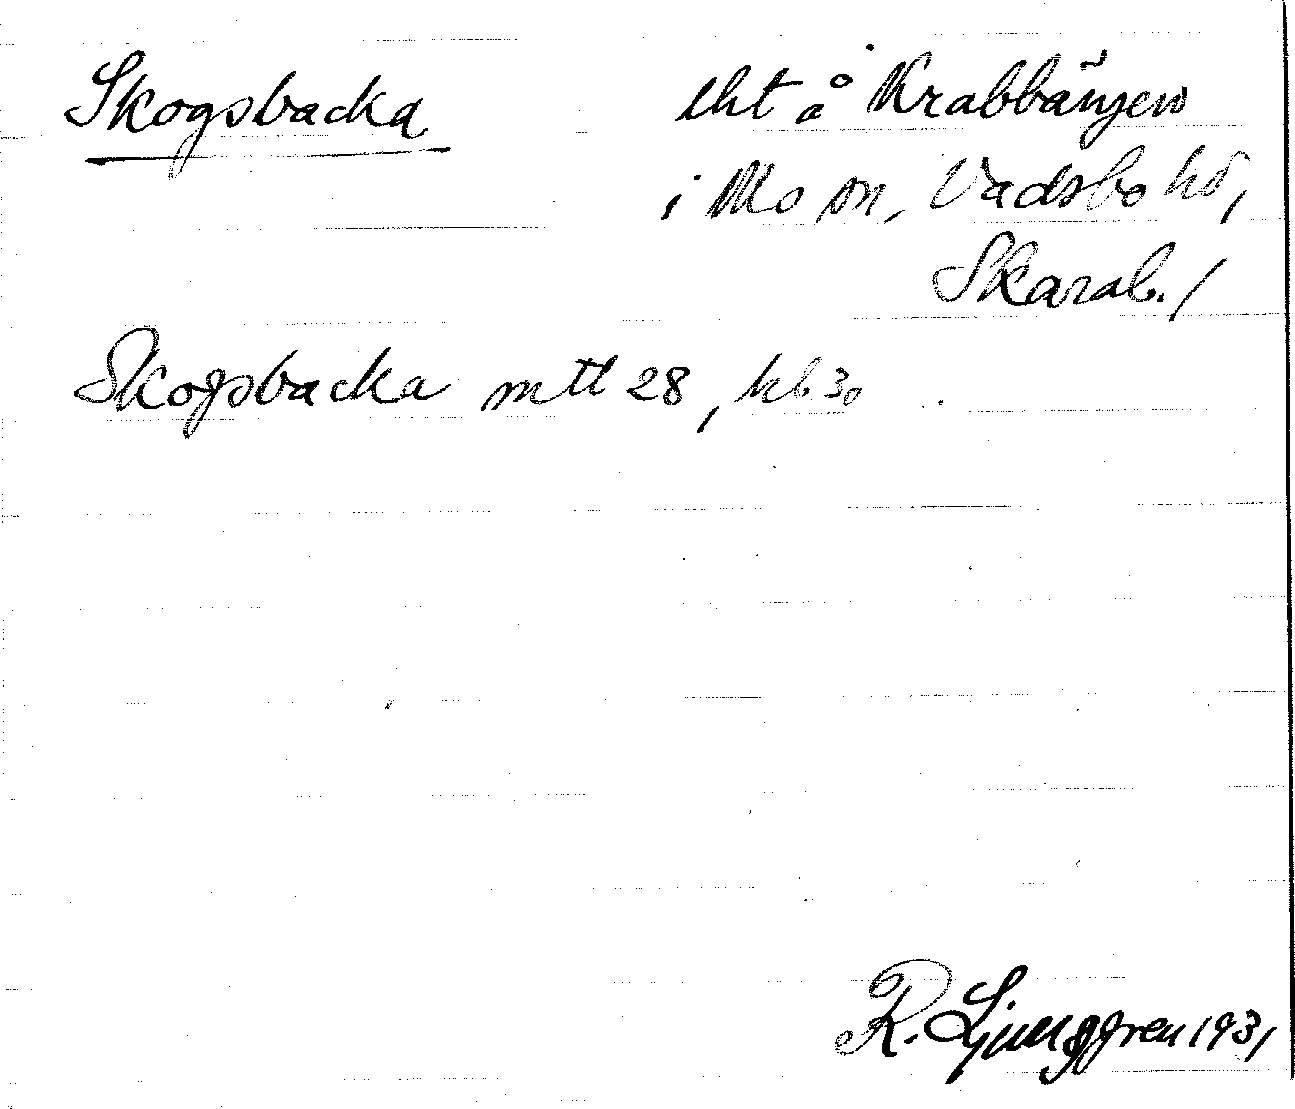 Skogsbacka lht å Krabbängen
i Mo sn, Vadsbo hd,
Skarab. /
Skogsbacka mtl 28, kb. 30
R. Ljunggren 1931